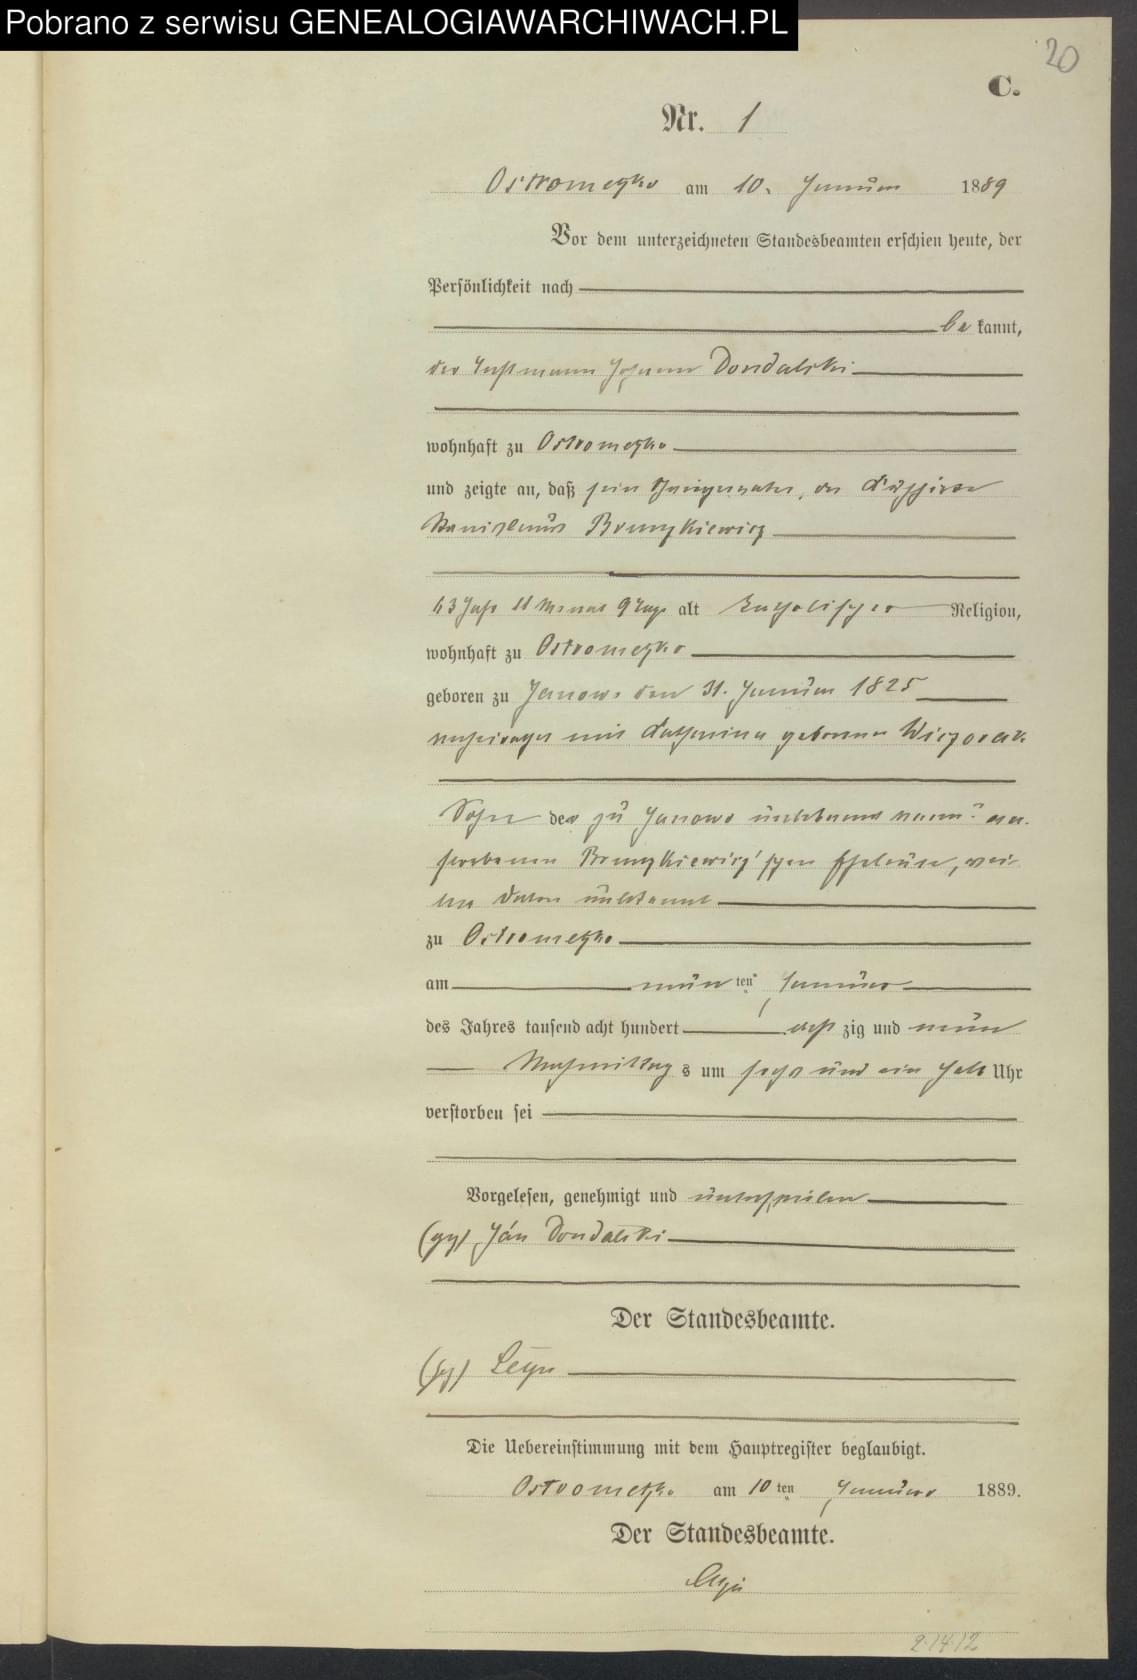 Pobrano z serwisu GENEALOGIAWARCHIWACH.PL
20
C.
Nr. 1
Ostrometzko am 10. Januar 1889
Vor dem unterzeichneten Standesbeamten erschien heute, der
Persönlichkeit nach
be kannt,
der Instmann Johann Dondalski
wohnhaft zu Ostrometzko
und zeigte an, daß sein Schwiegervater, der
Stanislaus Bronykiewicz
63 Jahr 11 Monat 9 Tage alt katholischer Religion,
wohnhaft zu Ostrometzko
geboren zu Janowo den 31. Januar 1825
verheirathet mit Katharina geborenen Wiczorek
Sohn der zu Janowo unbekannt wann ver-
storbenen Bronykiewicz'schen Eheleute, wei-
tere Daten unbekannt
zu Ostrometzko
am neun ten Januar
des Jahres tausend acht hundert acht zig und neun
Nachmittag s um sechs und ein halb Uhr
verstorben sei
Vorgelesen, genehmigt und unterschrieben
(gez) Ján Dondalski
Der Standesbeamte.
(gez)
Die Uebereinstimmung mit dem Hauptregister beglaubigt.
Ostrometzko am 10 ten Januar 1889.
Der Standesbeamte.
2.14.12